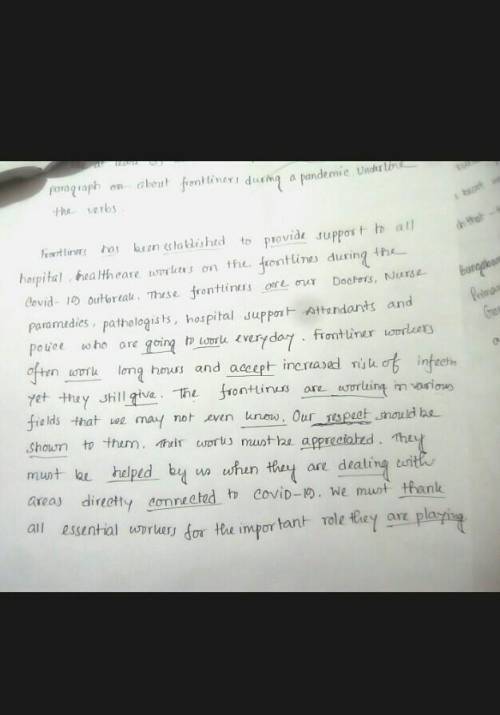 paragraph on about frontliners during a pandemic. Underline
the verbs.
Frontliners has been established to provide support to all
hospital, healthcare workers on the frontlines during the
Covid-19 outbreak. These frontliners are our Doctors, Nurse
paramedics, pathologists, hospital support Attendants and
police who are going to work everyday. Frontliner workers
often work long hours and accept increased risk of infectn
yet they still give. The frontliners are working in various
fields that we may not even know. Our respect should be
shown to them. Their works must be appreciated. They
must be helped by us when they are dealing with
areas directly connected to COVID-19. We must thank
all essential workers for the important role they are playing